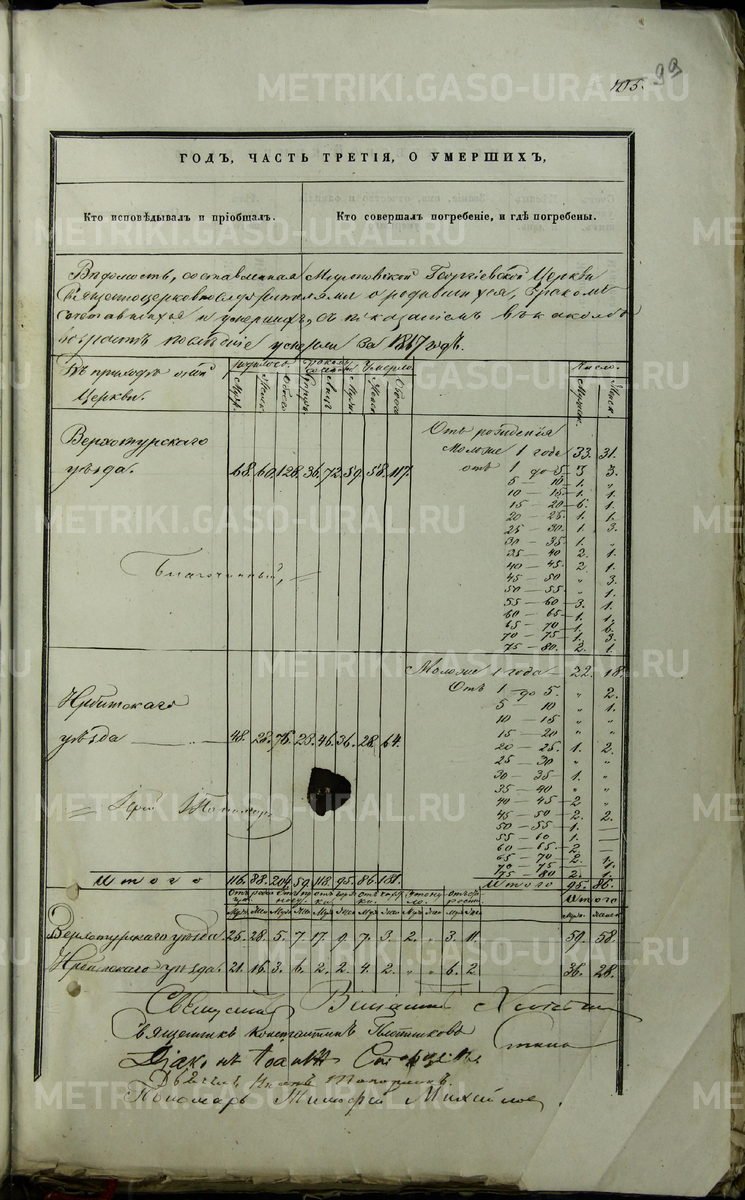 METRIKI.GASO-URAL.RU
105. 99
ГОДЪ, ЧАСТЬ ТРЕТІЯ, О УМЕРШИХЪ,
Кто исповѣдывалъ и пріобщалъ. Кто совершалъ погребеніе, и гдѣ погребены.
Вѣдомость, составленная Мироновской Георгіевской Церкви
Священноцерковнослужителями о родившихся, бракомъ
сочетавшихся и умершихъ, съ показаніемъ въ каковыхъ
возрастѣ послѣдніе умерли за 1847 годъ.
Въ приходѣ сей Церкви. родилось. Умерло. Число.
Муж. Женс. Обоего Муж. Женс. Обоего Мужск. Женск.
Верхотурскаго уѣзда. 68. 60. 128. 36. 72. 59. 58. 117.
Отъ рожденія
Моложе 1 года 33. 31.
отъ 1 до 5 3.
5 — 10 — 1. „
10 — 15 — 1. 1.
15 — 20 — 6. 1.
20 — 25. 1. 1.
25 — 30. 1. 3.
30 — 35 1. „
35 — 40 2. 1.
40 — 45. 2. 1.
45 — 50 „ 3.
50 — 55. „ 1.
55 — 60 — 3. 1.
60 — 65 — 1. 1.
65 — 70 — 1. 6.
70 — 75 — 1. 3.
75 — 80. 2. 1.
Благочинный,
Ирбитскаго уѣзда 48. 28. 76. 23. 46. 36. 28. 64.
Моложе 1 года — 22. 18.
Отъ 1 до 5. „ 2.
5 — 10 „ 1.
10 — 15 „ „
15 — 20 „ „
20 — 25. 1. 2.
25 — 30 „ „
30 — 35 1. „
35 — 40 „ „
40 — 45 — 2 „
45 — 50 — 2. 2.
50 — 55 — 1. —
55 — 60 1. —
60 — 65 — 2 —
65 — 70 — 2.
70 — 75 —
75 — 80 — 2. 1.
Итого 116. 88. 204. 59. 118. 95. 86. 181. Итого 95. 86.
Итого
Верхотурскаго уѣзда. 25. 28. 5. 7. 17. 9. 7. 3. 2. „ 3. 11. 59. 58.
Ирбитскаго уѣзда. 21. 16. 3. 6. 2. 2. 4. 2. „ „ 6. 2 36. 28.
Священникъ
Священникъ Константинъ Плотниковъ
Діаконъ Іоаннъ
Дьячекъ Иванъ Топорковъ.
Пономарь Тимофей Михайлов.